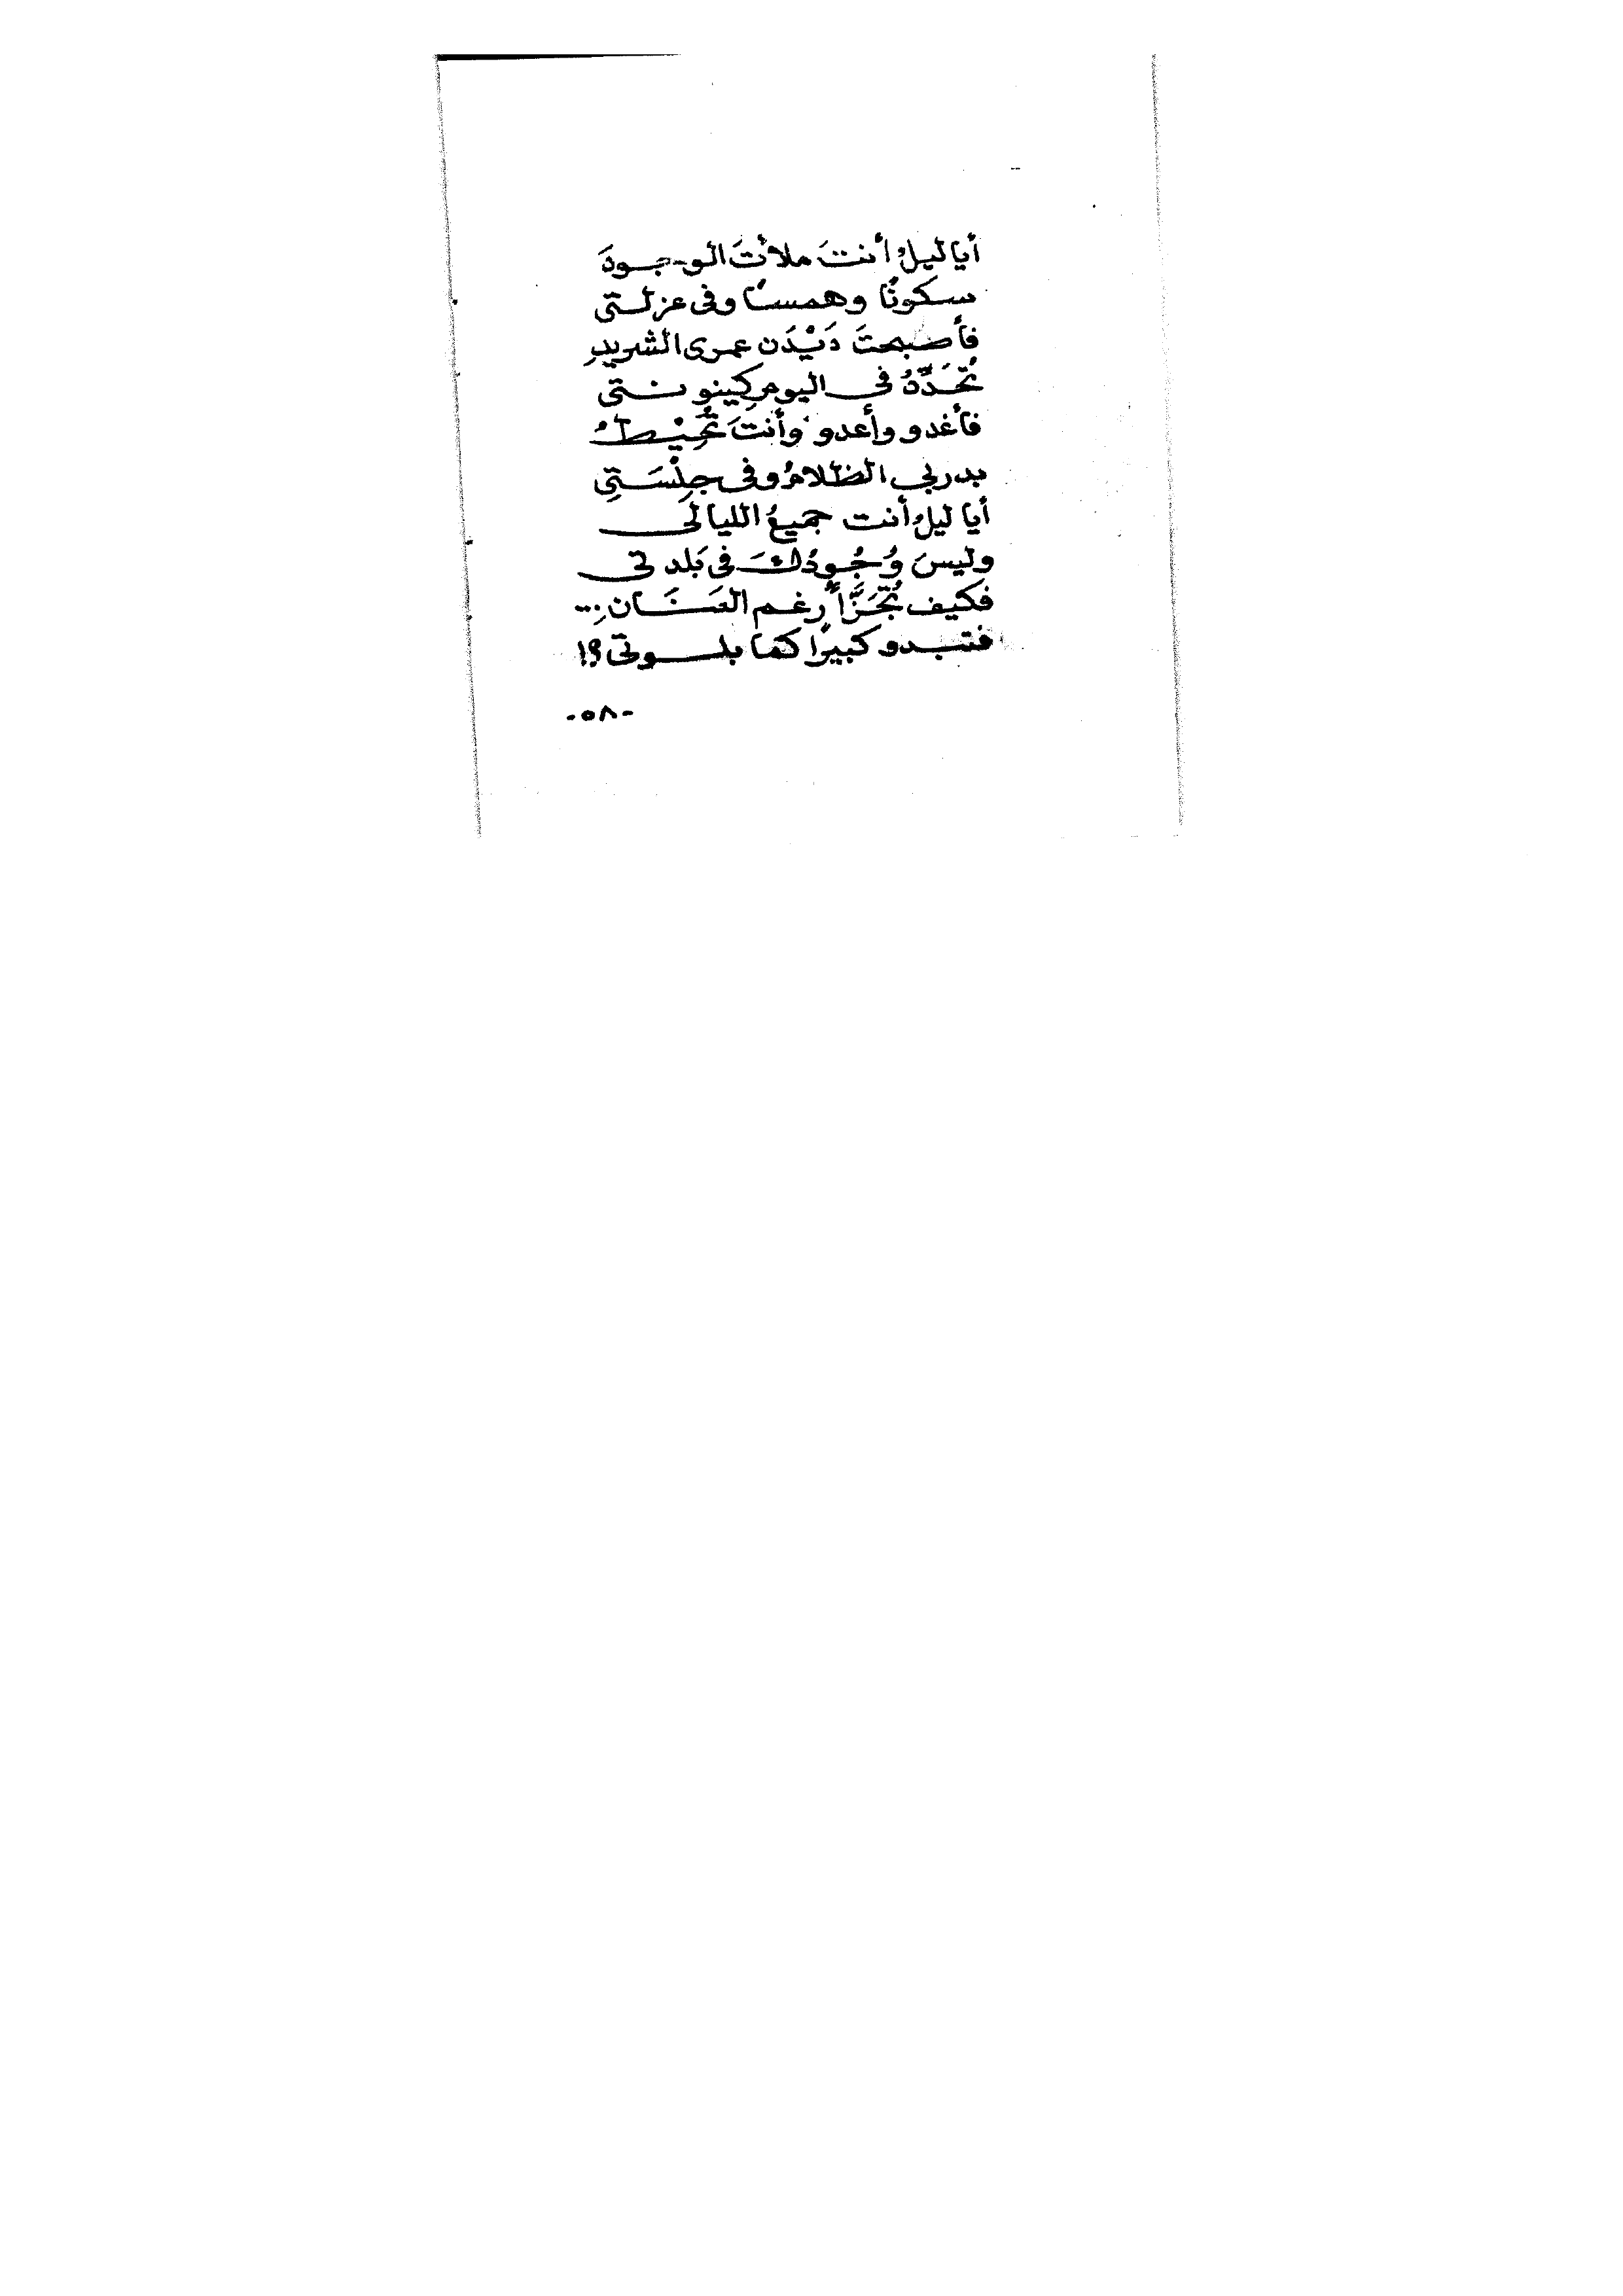 أيا ليلُ أنتَ ملأتَ الوجودَ
سكونًا وهمسًا وفى عزلتى
فأصبحتَ دَيْدَن عمرى الشريدِ
تُحَدِّدُ فى اليومِ كِينونتى
فأغدو وأعدو وأنتَ تُحِيْطُ
بدربى الظلامُ وفى جِلْسَتِى
أيا ليلُ أنت جميعُ الليالى
وليسَ وُجُودُكَ فى بَلدتى
فكيف تُجَزَّأُ رغم العَنَانِ...
فتبدو كبيرًا كما بلوتى؟!
-٥٨-